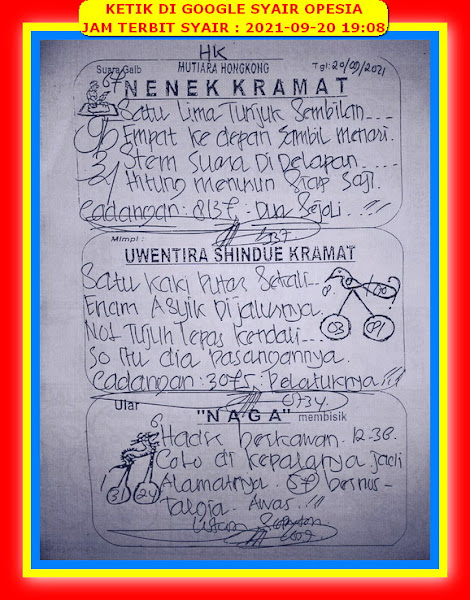 KETIK DI GOOGLE SYAIR OPESIA
JAM TERBIT SYAIR : 2021-09-20 19:08
HK
Suara Gaib MUTIARA HONGKONG Tgl: 20/09/2021
NENEK KRAMAT
Satu Lima Tunjuk Sembilan
Empat ke depan sambil menari.
Stem Suara Di Delapan
Hitung menurun Siap Saji.
Cadangan : 8137. Dua Sejoli. !!!
Mimpi :
UWENTIRA SHINDUE KRAMAT
Satu kaki putar Sekali
Enam Asyik Dijalurnya.
Not Tujuh lepas kendali
So itu dia pasangannya.
Cadangan : 3075. Pelatuknya !!!
03
Ular "NAGA" membisik
Hadir berkawan. 12.38.
Coto di kepalanya jadi
Alamatnya. 57 bernos-
talgia. Awas. !!!
31 24